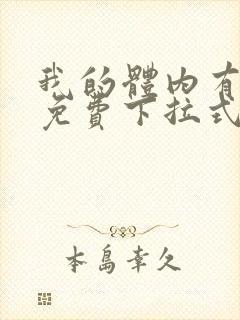 我的體内有
免費下拉式
本島幸久